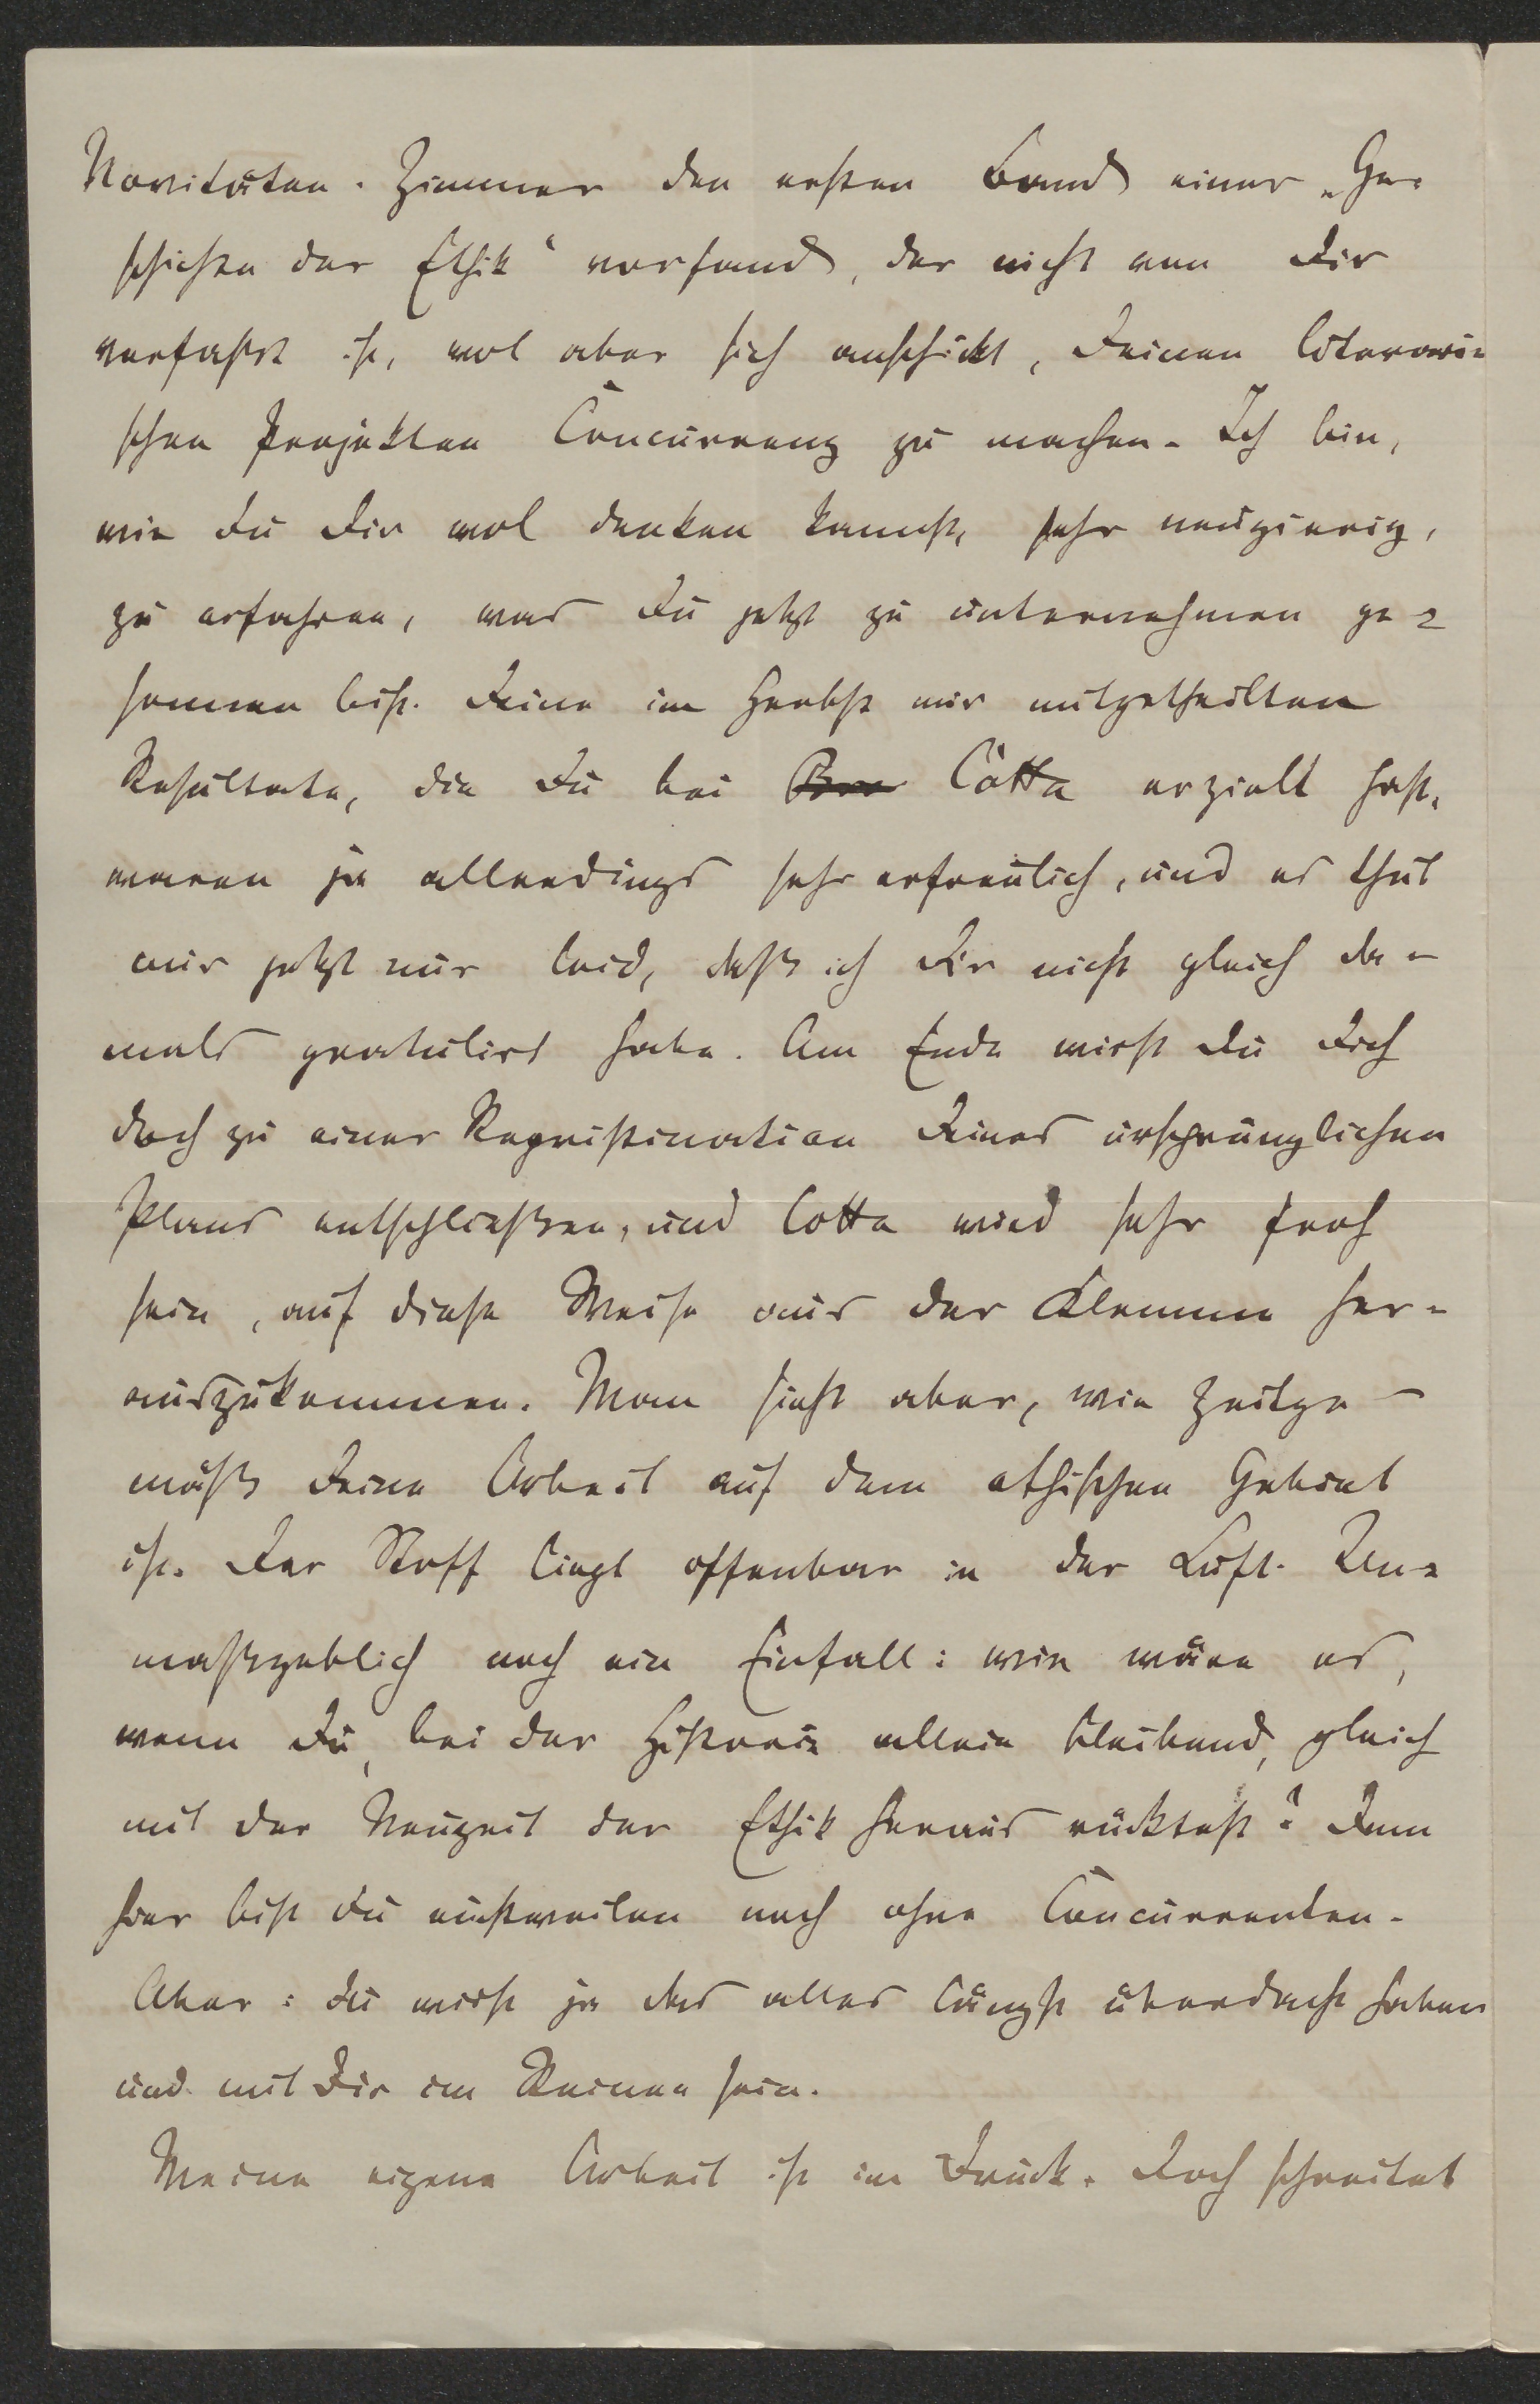 Novitäten-Zimmer den ersten Band einer „Ge-
schichte der Ethik“ vorfand, der nicht von Dir
verfaßt ist, wol aber sich anschickt, Deinen literari-
schen Projekten Concurrenz zu machen. Ich bin,
wie Du Dir wol denken kannst, sehr neugierig,
zu erfahren, was Du jetzt zu unternehmen ge-
sonnen bist. Deine im Herbst mir mitgetheilten
Resultate, die Du bei Cotta erzielt hast,
waren ja allerdings sehr erfreulich, und es thut
mir jetzt nur leid, daß ich Dir nicht gleich da-
mals gratulirt habe. Am Ende wirst Du Dich
doch zu einer Repristination Deines ursprünglichen
Plans entschließen, und Cotta wird sehr froh
sein, auf diese Weise aus der Klemme her-
auszukommen. Man sieht aber, wie zeitge-
mäß Deine Arbeit auf dem ethischen Gebiet
ist. Der Stoff liegt offenbar in der Luft. Un-
maßgeblich noch ein Einfall: wie wäre es,
wenn Du, bei der Historie allein bleibend, gleich
mit der Neuzeit der Ethik heraus rücktest? Denn
hier bist Du einstweilen noch ohne Concurrenten.
Aber: Du wirst ja das alles längst überdacht haben
und mit Dir im Reinen sein.
Meine eigene Arbeit ist im Druck. Doch schreitet